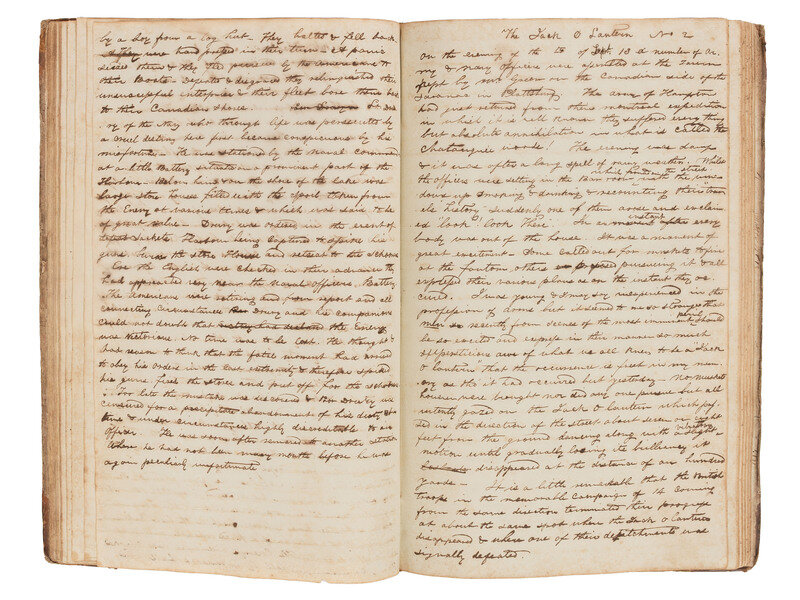 by a boy from a log hut. They halted & fell back
They were hard pressed in their turn. A panic
seised them & they fled pursued by the Americans to
their Boats. Defeated & disgraced they relinquished their
unsuccessful enterprise & their fleet bore them back
to their Canadian shore. Lt. Drew
ry of the Navy who through life was persecuted by
a cruel destiny here first became conspicuous by his
misfortune. He was stationed by the Naval commander
at a little Battery situated on a prominent part of the
Harbour. Below him on the shore of the lake was
large store house filled with the spoil taken from
the Enemy at various times & which was said to be
of great value. Drury was ordered in the event of
Sackets Harbour being captured to spike his
guns burn the Store House and retreat to the schooner
the English were checked in their advance they
had approached very near the Naval officers Battery
The Americans were retiring and from report and all
connecting circumstances Drury and his companions
could not doubt that the Enemy
was victorious. No time was to be lost. He thought he
had reason to think that the fatal moment had arrived
to obey his orders in the last extremity & therefore spiked
his guns fired the stores and put off for the schooner
Too late the mistake was discovered & poor Drury was
censured for a precipitate abandonment of his duty
time & under circumstances highly discreditable to an
officer. He was soon after removed to another station
where he had not been many months before he was
again peculiarly unfortunate
The Jack O Lantern No 2
On the evening of the 15 of 18 a number of Ar
my & Navy officers were assembled at the Tavern
kept by Mr Green on the Canadian side of the
Saranac in Plattsburg. The army of Hampton
had just returned from their montreal expedition
in which it is well known they suffered everything
but absolute annihilation in what is called the
Chataugue woods! The evening was damp
& it was after a long spell of rainy weather. Whilst
the officers were sitting in the Bar room with the windows
which fronted on the street
down smoking & drinking & recounting their
history suddenly one of them arose and exclaim
ed look! look there. In an instant every
body was out of the house. It was a moment of
great excitement. Some called out for muskets to fire
at the fantom others pursuing it & all
expressed their various plans as on the instant they oc
cured. I was young & I may say inexperienced in the
profession of arms but it seemed to me so strange that
men so recently from scenes of the most imminent peril should
be so excited and express in their manner so much
superstitious awe of what we all knew to be a "Jack
o Lantern" that the occurrence is fresh in my mem
ory as tho' it had occurred but yesterday. No muskets
however were brought nor did any one pursue but all
intently gazed on the Jack O lantern which pas
sed in the direction of the street about seven or eight
feet from the ground dancing along with a slight vibrating
motion until gradually losing its brilliancy it
disappeared at the distance of an hundred
yards. It is a little remarkable that the British
troops in the memorable campaign of 14 coming
from the same direction terminated their progress
at about the same spot where the Jack o lantern
disappeared & where one of their detachments was
signally defeated.